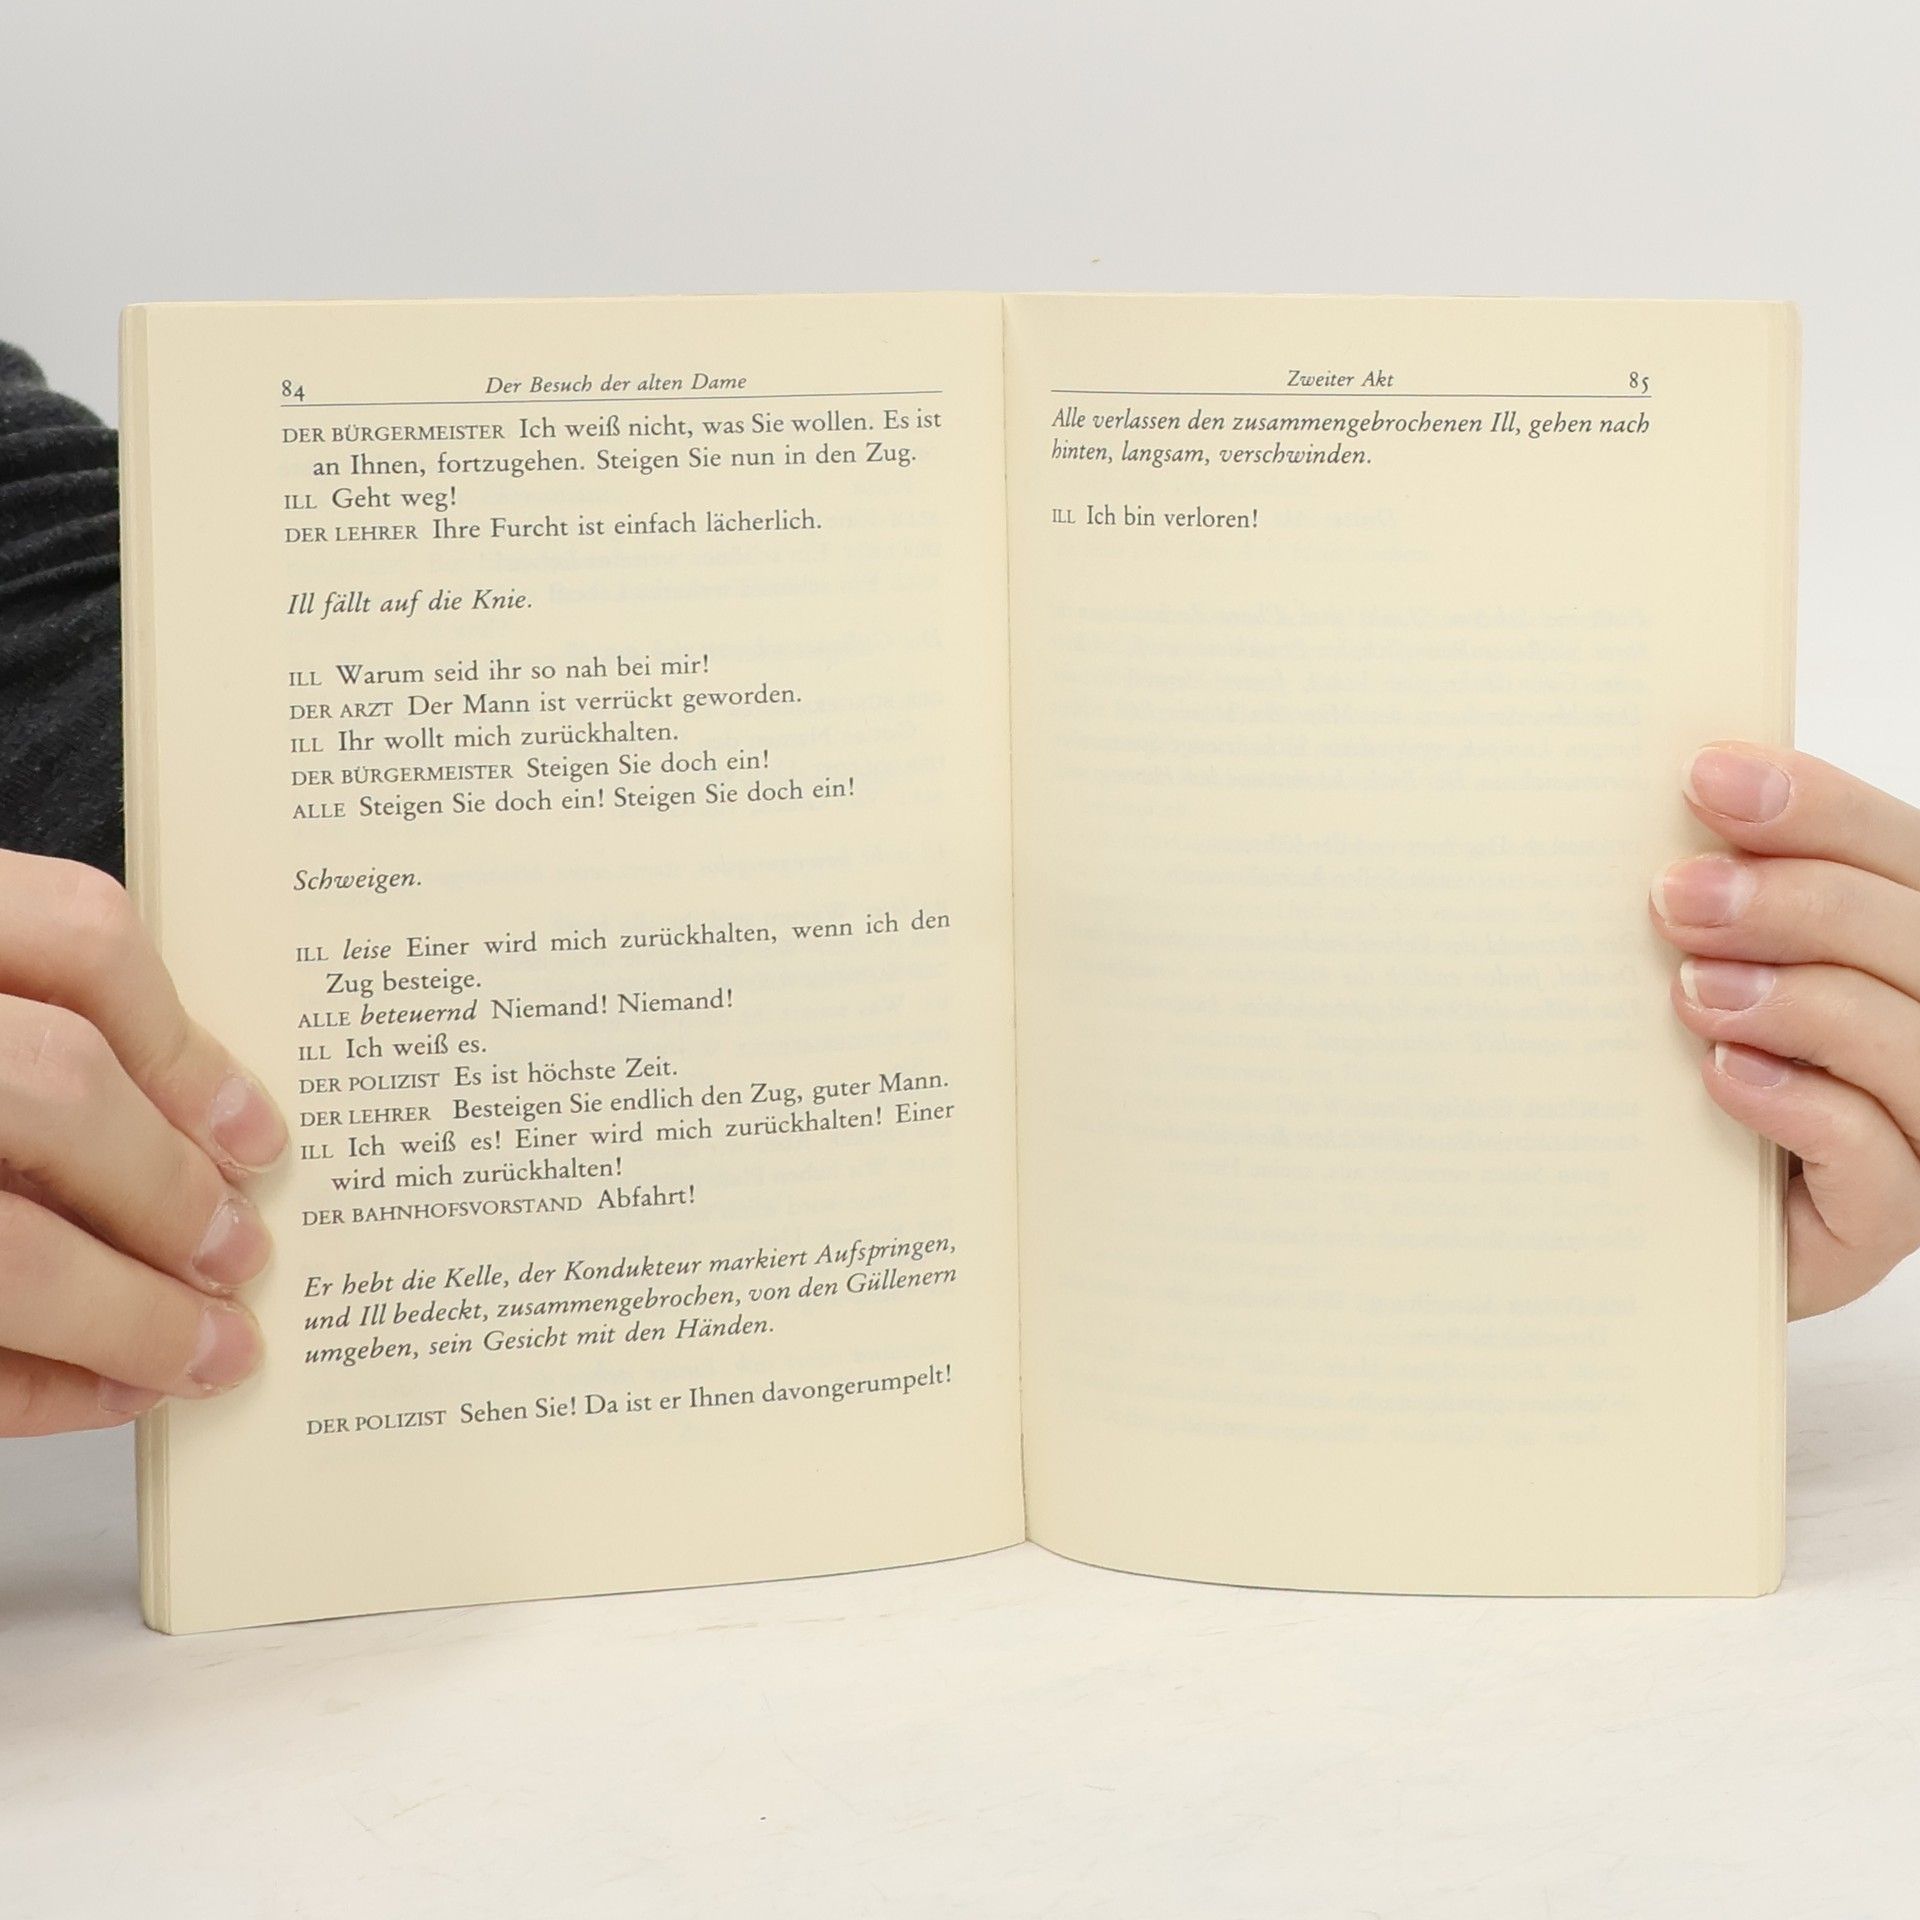 84 Der Besuch der alten Dame
DER BÜRGERMEISTER Ich weiß nicht, was Sie wollen. Es ist
an Ihnen, fortzugehen. Steigen Sie nun in den Zug.
ILL Geht weg!
DER LEHRER Ihre Furcht ist einfach lächerlich.
Ill fällt auf die Knie.
ILL Warum seid ihr so nah bei mir!
DER ARZT Der Mann ist verrückt geworden.
ILL Ihr wollt mich zurückhalten.
DER BÜRGERMEISTER Steigen Sie doch ein!
ALLE Steigen Sie doch ein! Steigen Sie doch ein!
Schweigen.
ILL leise Einer wird mich zurückhalten, wenn ich den
Zug besteige.
ALLE beteuernd Niemand! Niemand!
ILL Ich weiß es.
DER POLIZIST Es ist höchste Zeit.
DER LEHRER Besteigen Sie endlich den Zug, guter Mann.
ILL Ich weiß es! Einer wird mich zurückhalten! Einer
wird mich zurückhalten!
DER BAHNHOFSVORSTAND Abfahrt!
Er hebt die Kelle, der Kondukteur markiert Aufspringen,
und Ill bedeckt, zusammengebrochen, von den Güllenern
umgeben, sein Gesicht mit den Händen.
DER POLIZIST Sehen Sie! Da ist er Ihnen davongerumpelt!
Zweiter Akt 85
Alle verlassen den zusammengebrochenen Ill, gehen nach
hinten, langsam, verschwinden.
ILL Ich bin verloren!